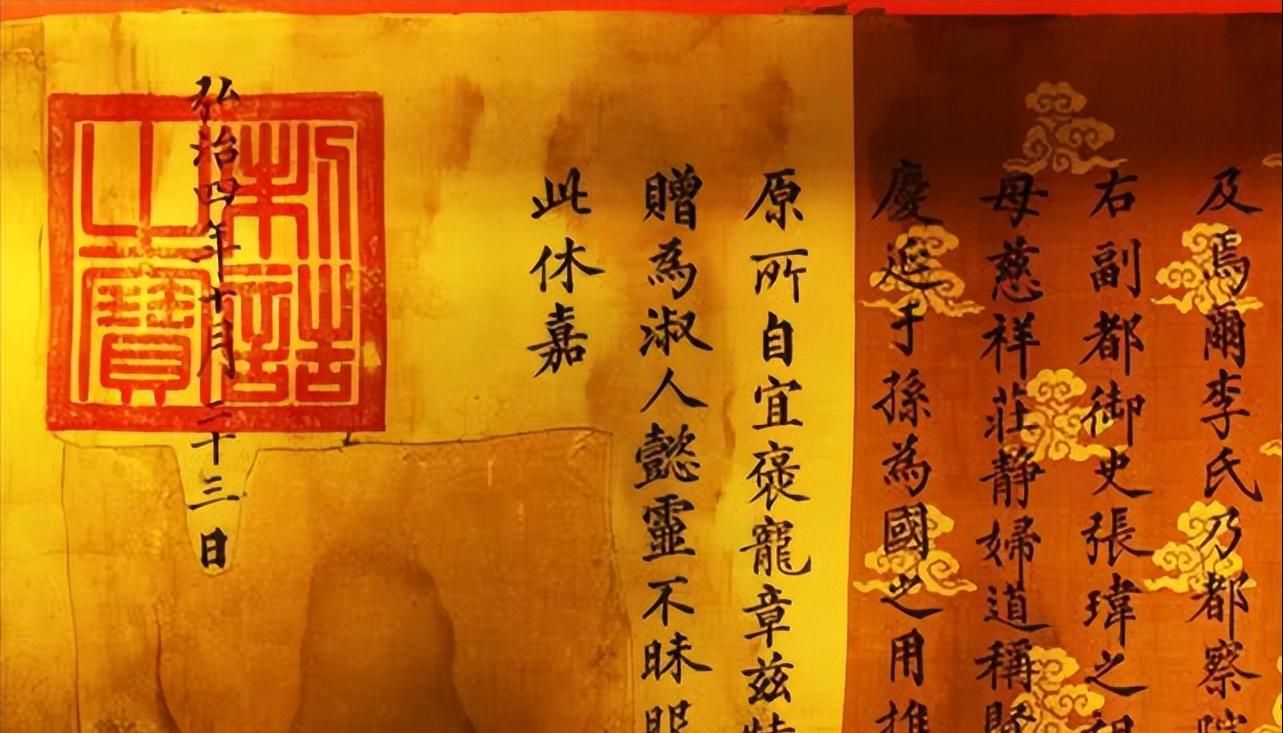 及焉爾李氏乃都察院
右副都御史張瑋之祖
母慈祥莊靜婦道稱賢
慶延于孫為國之用推
原所自宜褒寵章茲特
贈為淑人懿靈不昧
此休嘉
弘治四年十月二十三日
制誥之寶